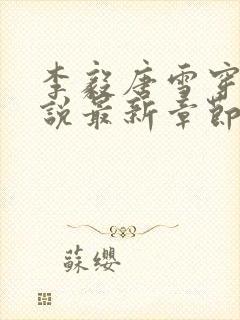 李毅唐雪穿
说最新章節
蘇纓